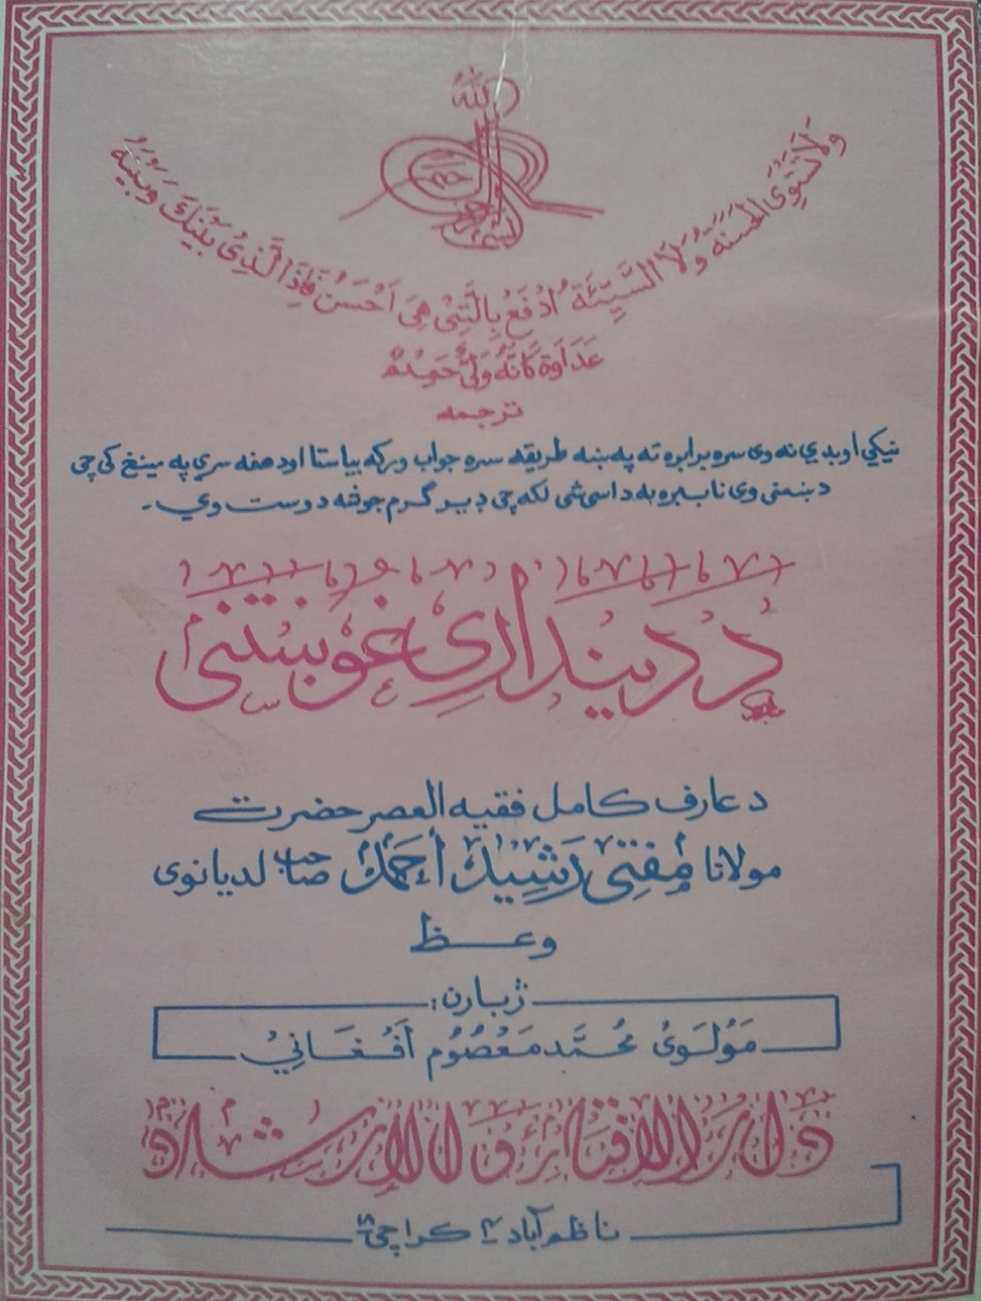 وَلَا تَسْتَوِى الْحَسَنَةُ وَلَا السَّيِّئَةُ اُدْفَعْ بِالَّتِىْ هِىَ اَحْسَنُ فَاِذَا الَّذِىْ بَيْنَكَ وَبَيْنَهٗ
عَدَاوَةٌ كَاَنَّهٗ وَلِىٌّ حَمِيْمٌ
ترجمه
نيکي او بدي نه وی سره برابره ته په ښه طريقه سره جواب ورکه بيا ستا او دهغه سړي په مينځ کی چی
دښمنی وی نا ببره به داسی شی لکه چی ډير گرم جوخته دوست وي۔
د دیندارۍ غوښتنی
د عارف کامل فقيه العصر حضرت
مولانا مُفتِی رَشِيد أحمَد صاحب لديانوی
وعظ
ژبارن:
مَوْلَوِیْ مُحَمَّد مَعْصُوْم اَفْغَانِیْ
دار الافتاء و الارشاد
ناظم آباد ۴ کراچی ۱۸